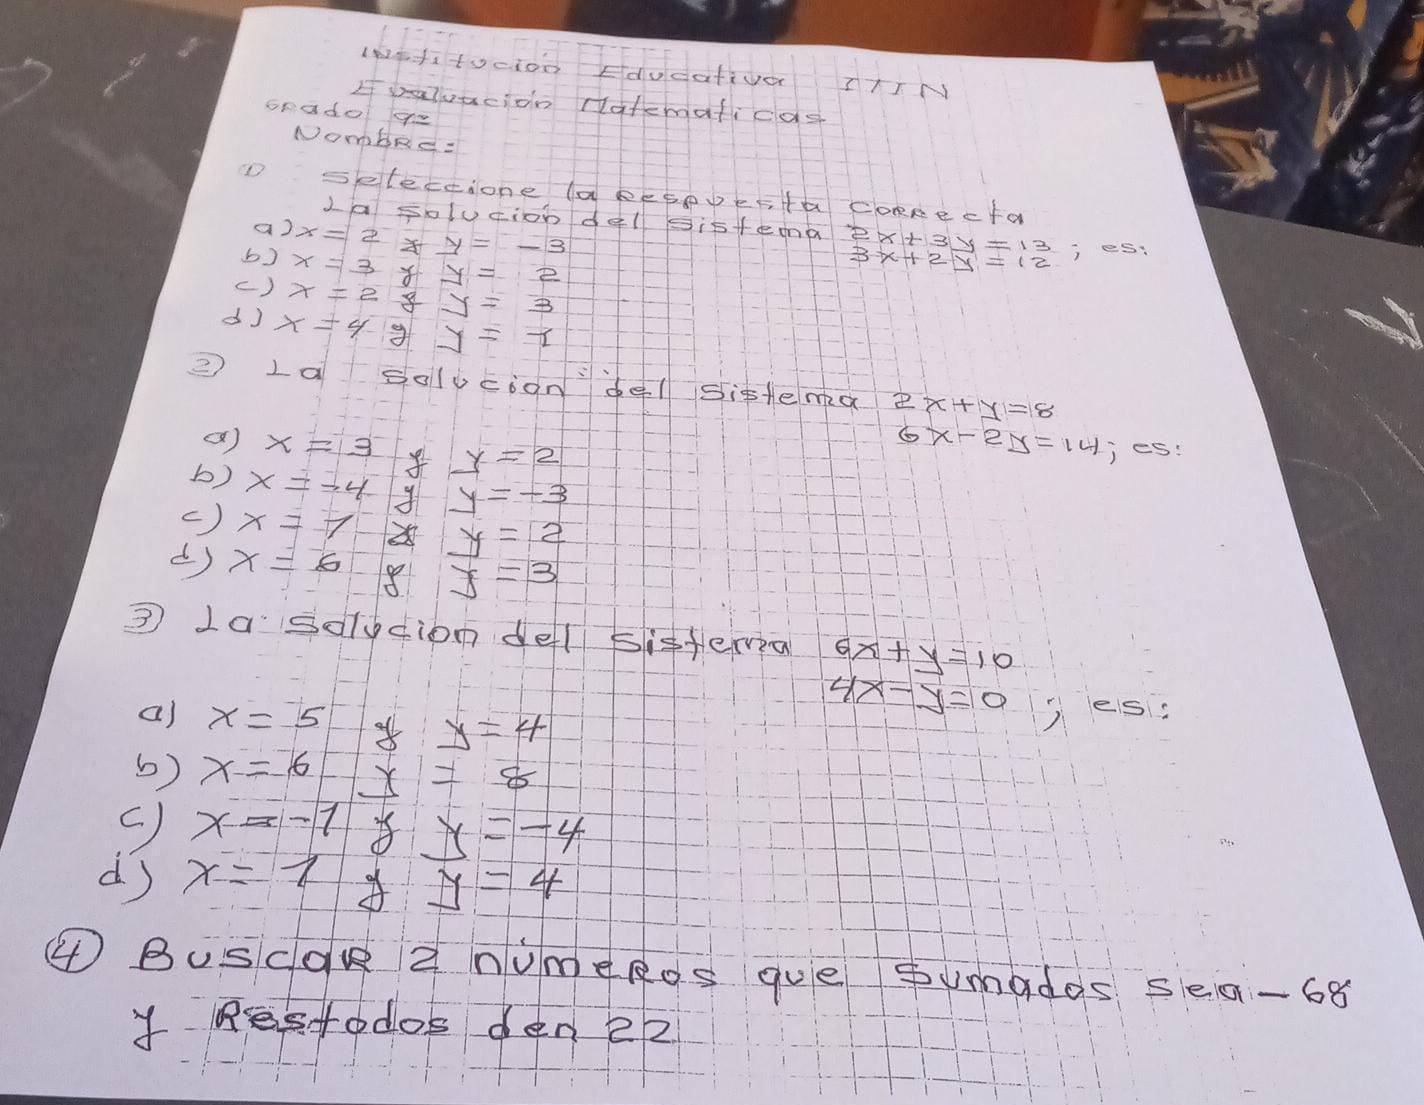 Institución Educativa ITIN
Evaluación Matematicas
Grado 9º
Nombre:
① Seleccione la Respuesta correcta
La solución del sistema 2x+3y=13
3x+2y=12 ; es:
a) x=2 y y=-3
b) x=3 y y=2
c) x=2 y y=3
d) x=4 y y=1
② La solucion del sistema 2x+y=8
6x-2y=14; es:
a) x=3 y y=2
b) x=-4 y y=-3
c) x=7 y y=2
d) x=6 y y=3
③ La solucion del sistema 6x+y=10
4x-y=0 ; es:
a) x=5 y y=4
b) x=6 y=8
c) x=-1 y y=-4
d) x=1 y y=4
④ Buscar 2 números que sumados sea-68
y Restados den 22